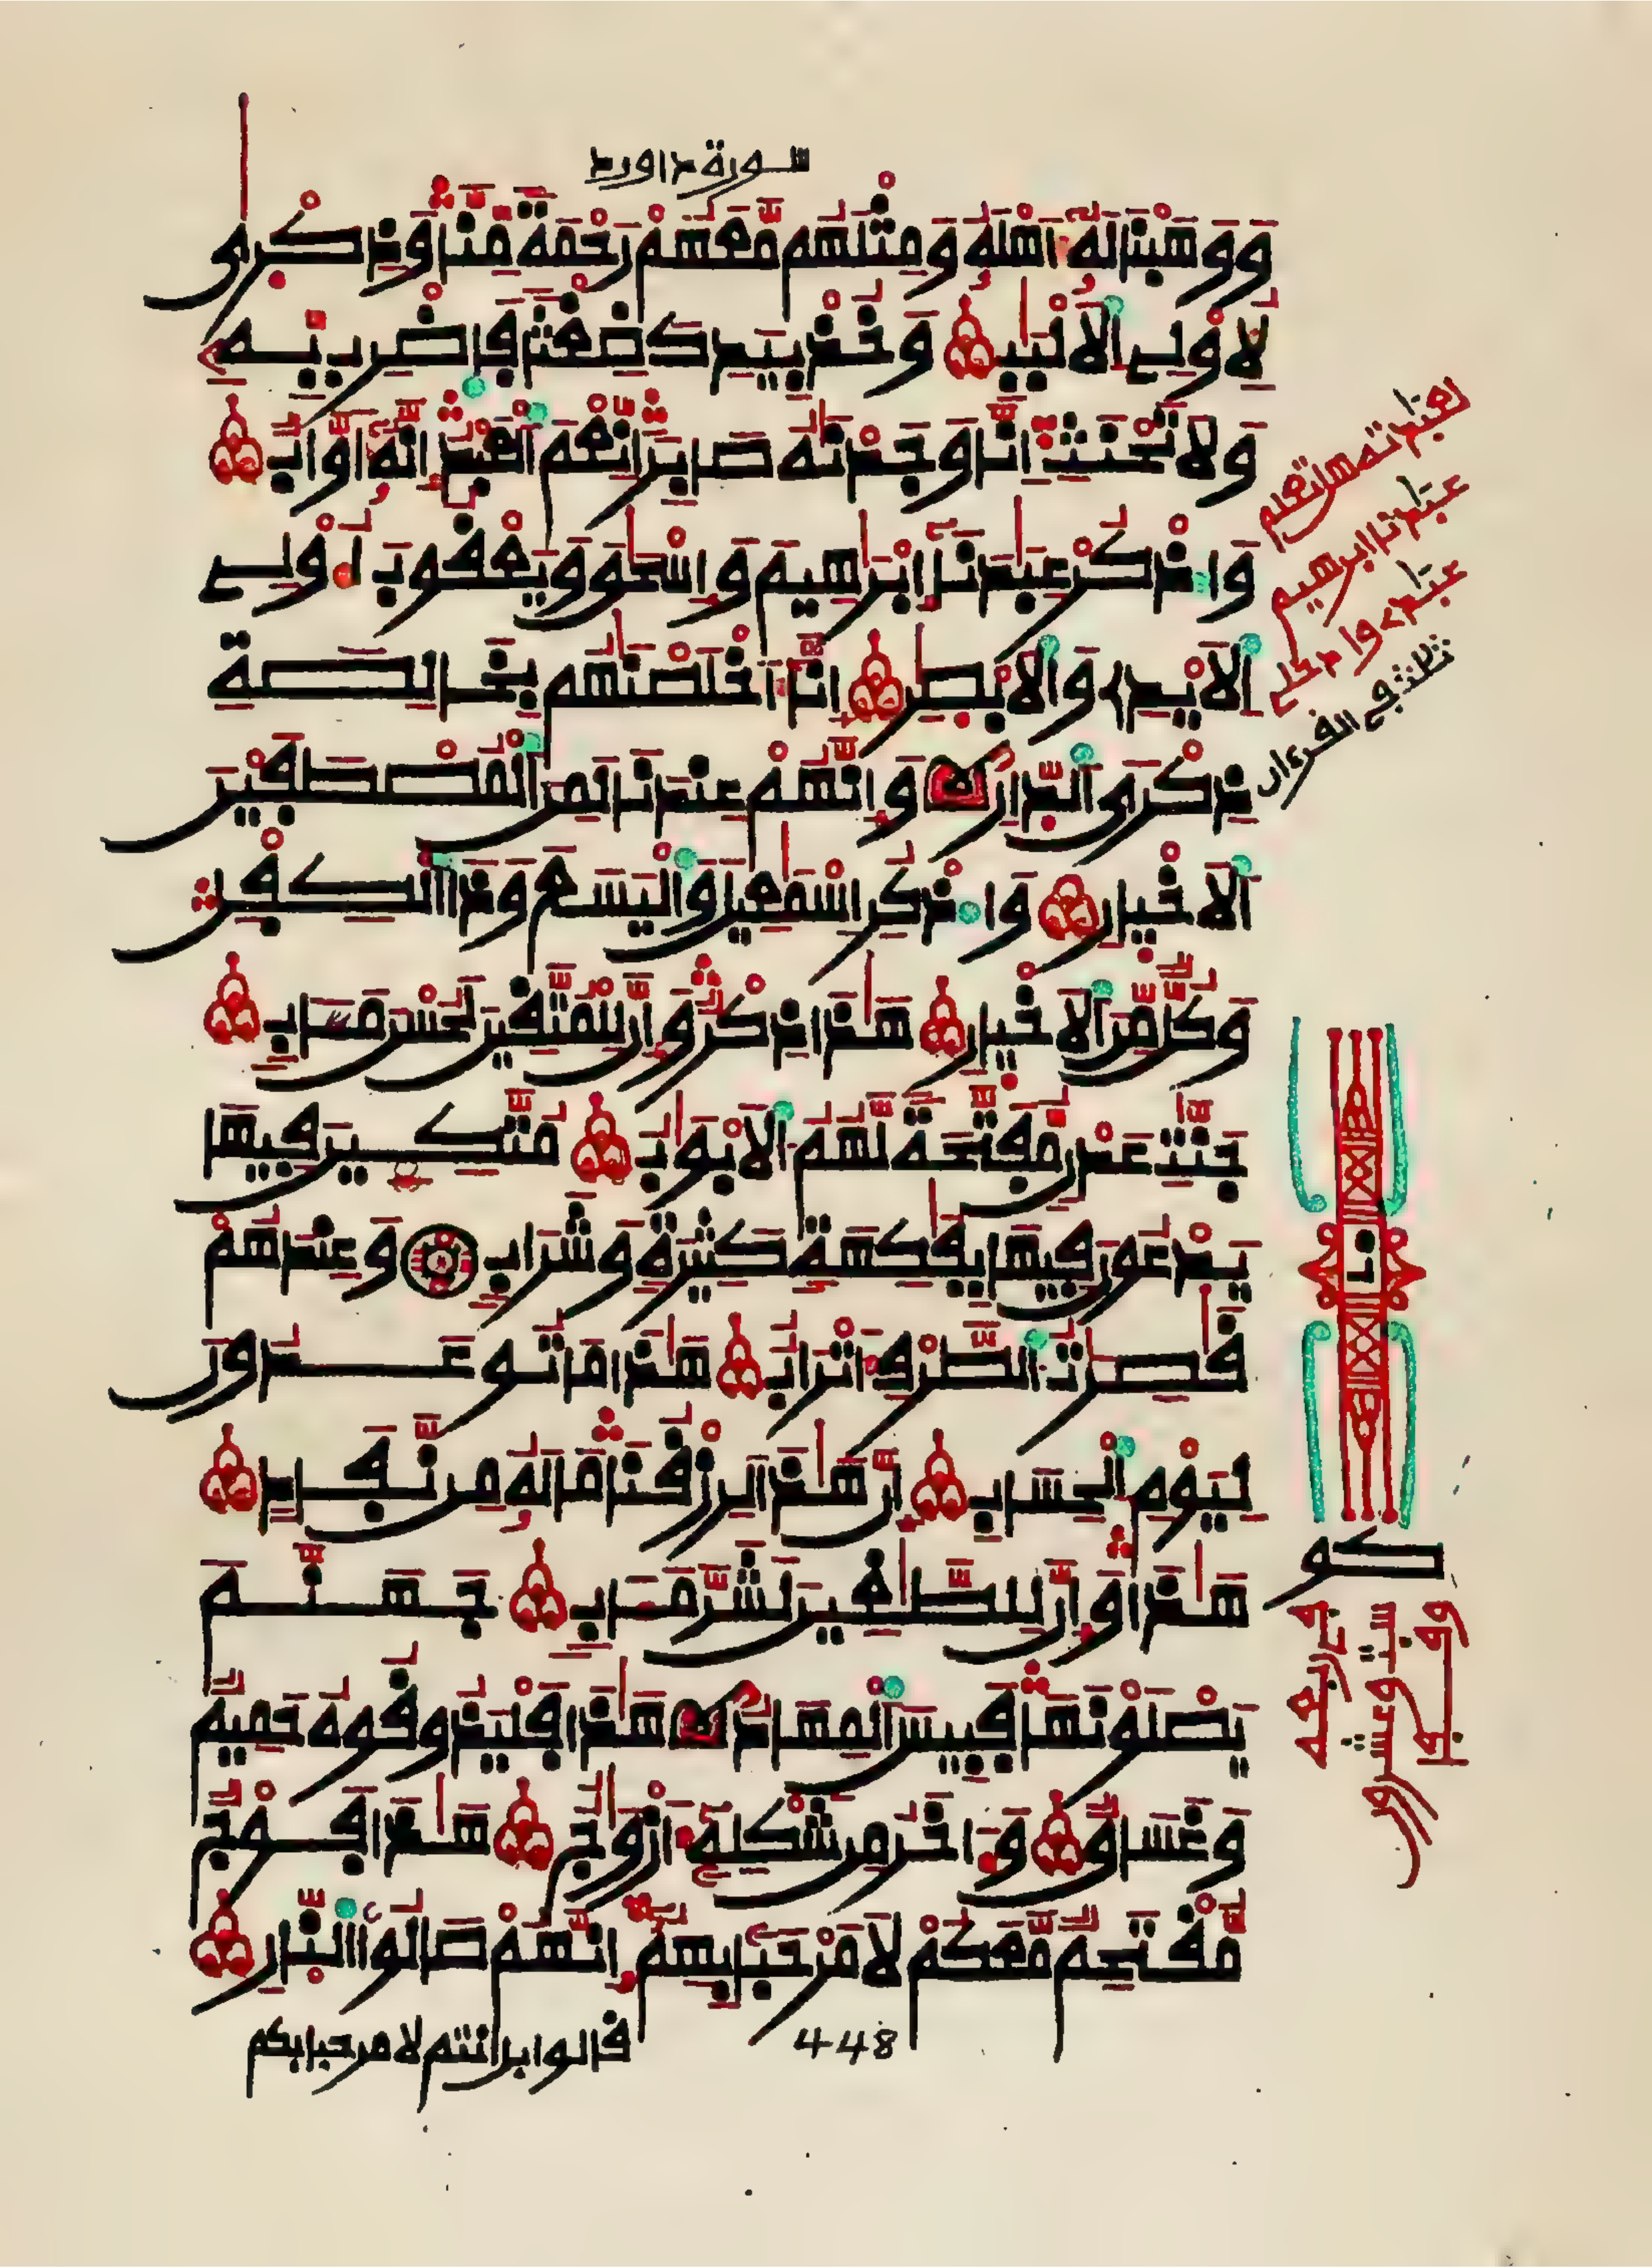 سورة داورد
وَوَهَبْنَا لَهُۥٓ أَهْلَهُۥ وَمِثْلَهُم مَّعَهُمْ رَحْمَةً مِّنَّا وَذِكْرَىٰ
لِأُوْلِے اِ۬لَالْبَٰبِ وَخُذْ بِيَدِكَ ضِغْثاً فَاضْرِب بِّهِۦ
وَلَا تَحْنَثِ اِنَّا وَجَدْنَٰهُ صَابِراً نِّعْمَ اَ۬لْعَبْدُ إِنَّهُۥٓ أَوَّابٌ
وَاذْكُرْ عِبَٰدَنَآ إِبْرَٰهِيمَ وَإِسْحَٰقَ وَيَعْقُوبَ أُوْلِے
اِ۬لَايْدِے وَالَابْصٰ۪رِ إِنَّآ أَخْلَصْنَٰهُم بِخَالِصَةِ
ذِكْرَى اَ۬لدّ۪ارِ وَإِنَّهُمْ عِندَنَا لَمِنَ اَ۬لْمُصْطَفَيْنَ
اَ۬لَاخْي۪ارِ وَاذْكُرِ اِسْمَٰعِيلَ وَالْيَسَعَ وَذَا اَ۬لْكِفْلِ
وَكُلٌّ مِّنَ اَ۬لَاخْي۪ارِ هَٰذَا ذِكْرٌ وَإِنَّ لِلْمُتَّقِينَ لَحُسْنَ مَـَٔابٍ
جَنَّٰتِ عَدْنٍ مُّفَتَّحَةً لَّهُمُ اُ۬لَابْوَٰبُ مُتَّكِـِٕينَ فِيهَا
يَدْعُونَ فِيهَا بِفَٰكِهَةٍ كَثِيرَةٍ وَشَرَابٍ وَعِندَهُمْ
قَٰصِرَٰتُ اُ۬لطَّرْفِ أَتْرَابٌ هَٰذَا مَا تُوعَدُونَ
لِيَوْمِ اِ۬لْحِسَابِ إِنَّ هَٰذَا لَرِزْقُنَا مَا لَهُۥ مِن نَّفَادٍ
هَٰذَا وَإِنَّ لِلطَّٰغِينَ لَشَرَّ مَـَٔابٍ جَهَنَّمَ
يَصْلَوْنَهَا فَبِيسَ اَ۬لْمِهَادُ هَٰذَا فَلْيَذُوقُوهُ حَمِيمٌ
وَغَسَاقٌ وَءَاخَرُ مِن شَكْلِهِۦٓ أَزْوَٰجٌ هَٰذَا فَوْجٌ
مُّقْتَحِمٌ مَّعَكُمْ لَا مَرْحَباً بِهِمُۥٓ إِنَّهُمْ صَالُوا اُ۬لنّ۪ارِ
قالوا بل انتم لا مرحبا بكم
448
لعبادته هل تعلم
عبادنا ابرهيم
عبادے وادخلے
ثلث في القرءان
كو